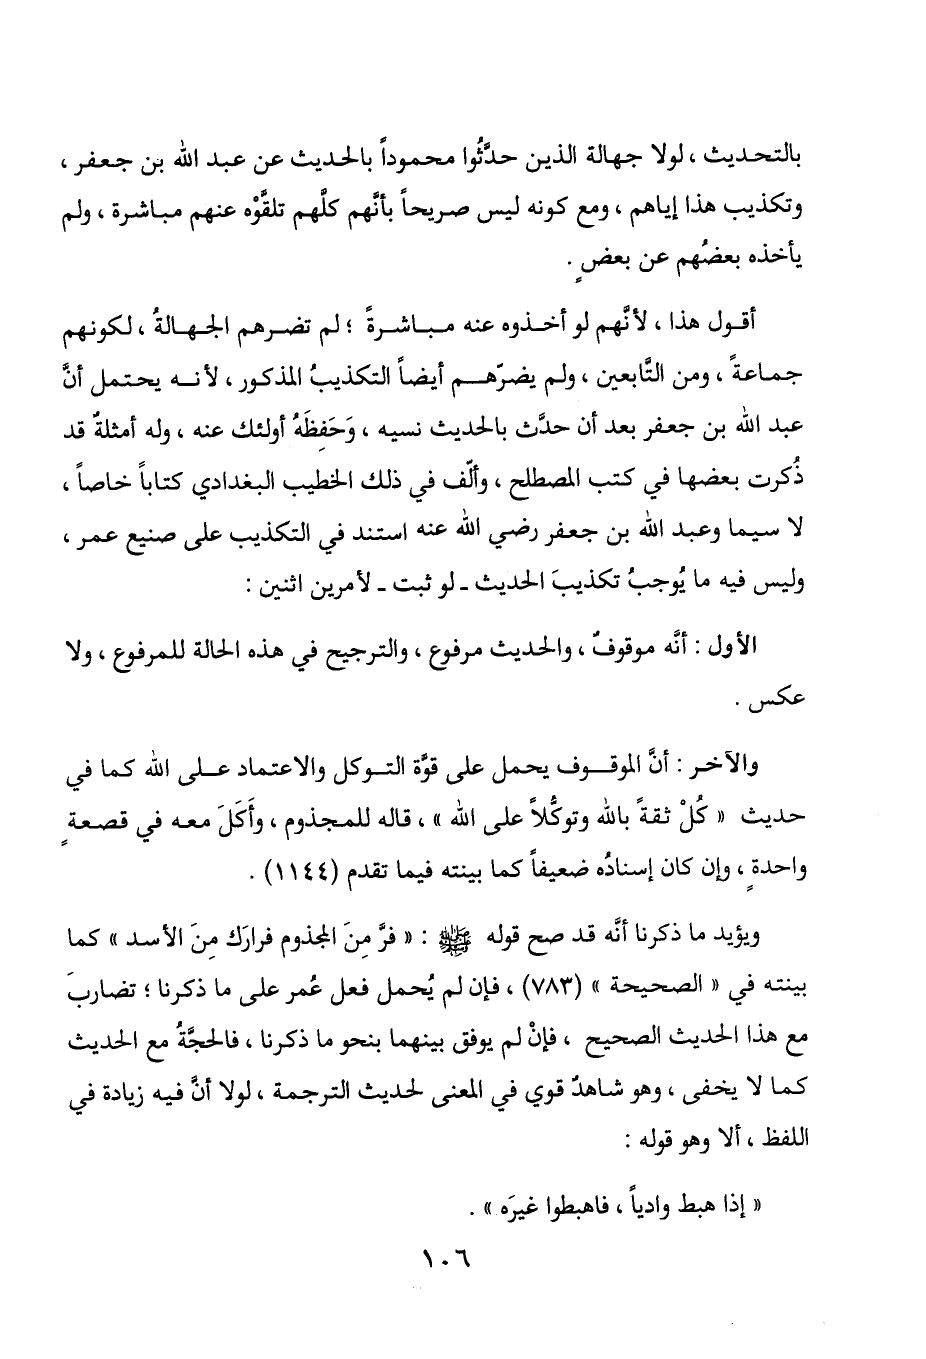 بالتحديث ، لولا جهالة الذين حدَّثُوا محموداً بالحديث عن عبد الله بن جعفر ،
وتكذيب هذا إياهم ، ومع كونه ليس صريحاً بأنَّهم كلَّهم تلقَّوْه عنهم مباشرة ، ولم
يأخذه بعضُهم عن بعضٍ .
أقول هذا ، لأنَّهم لو أخذوه عنه مباشرةً ؛ لم تضرهم الجهالةُ ، لكونهم
جماعةً ، ومن التَّابعين ، ولم يضرّهم أيضاً التكذيبُ المذكور ، لأنه يحتمل أنَّ
عبد الله بن جعفر بعد أن حدَّث بالحديث نسيه ، وَحَفِظَهُ أولئك عنه ، وله أمثلةٌ قد
ذُكرت بعضها في كتب المصطلح ، وألّف في ذلك الخطيب البغدادي كتاباً خاصاً ،
لا سيما وعبد الله بن جعفر رضي الله عنه استند في التكذيب على صنيع عمر ،
وليس فيه ما يُوجبُ تكذيبَ الحديث ـ لو ثبت ـ لأمرين اثنين :
الأول : أنَّه موقوفٌ ، والحديث مرفوع ، والترجيح في هذه الحالة للمرفوع ، ولا
عكس .
والآخر : أنَّ الموقوف يحمل على قوَّة التوكل والاعتماد على الله كما في
حديث « كُلْ ثقةً بالله وتوكُّلاً على الله » ، قاله للمجذوم ، وأَكَلَ معه في قصعةٍ
واحدةٍ ، وإن كان إسنادُه ضعيفاً كما بينته فيما تقدم (١١٤٤) .
ويؤيد ما ذكرنا أنَّه قد صح قوله ﷺ : « فرَّ مِنَ المجذوم فرارَك مِنَ الأسد » كما
بينته في « الصحيحة » (٧٨٣) ، فإن لم يُحمل فعل عُمر على ما ذكرنا ؛ تضاربَ
مع هذا الحديث الصحيح ، فإنْ لم يوفق بينهما بنحو ما ذكرنا ، فالحجَّةُ مع الحديث
كما لا يخفى ، وهو شاهدٌ قوي في المعنى لحديث الترجمة ، لولا أنَّ فيه زيادة في
اللفظ ، ألا وهو قوله :
« إذا هبط وادياً ، فاهبطوا غيرَه » .
١٠٦